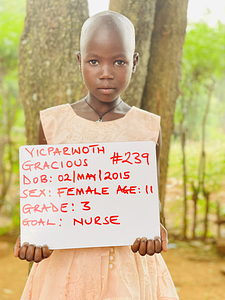 YICPARWOTH
GRACIOUS #239
DOB: 02/MAY/2015
SEX: FEMALE AGE: 11
GRADE: 3
GOAL: NURSE